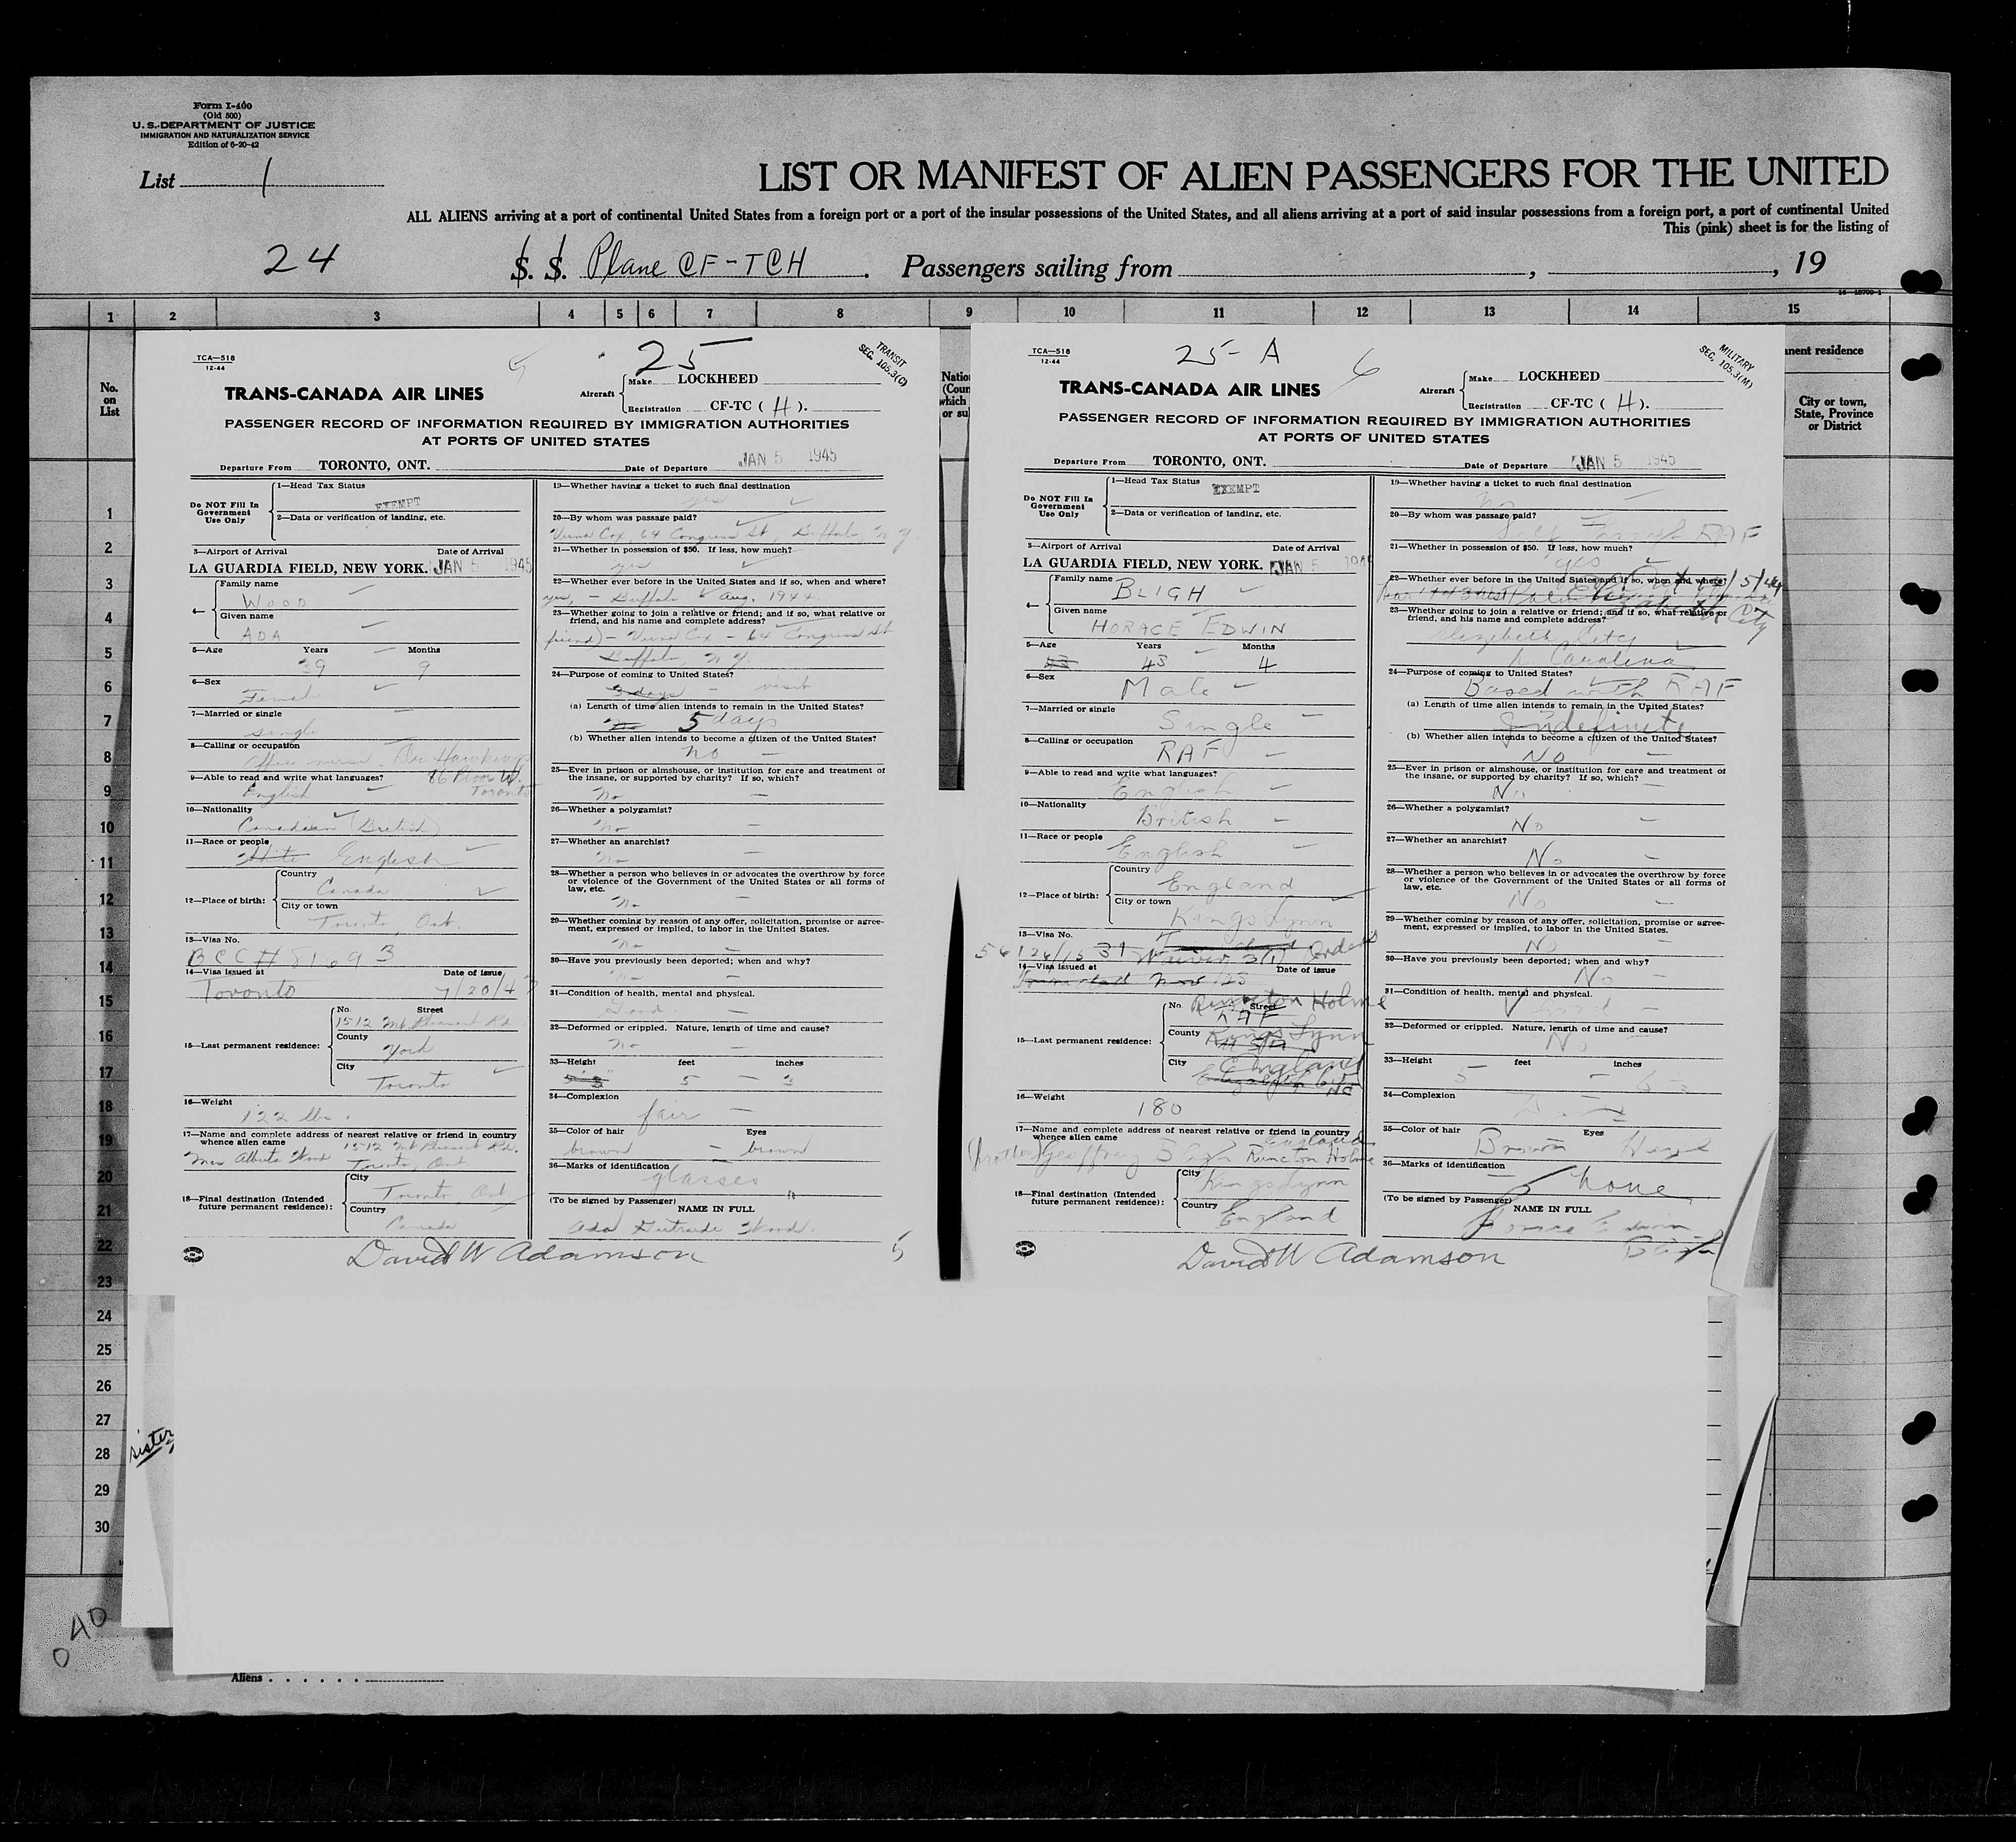 Form I-400
(Old 500)
U. S. DEPARTMENT OF JUSTICE
IMMIGRATION AND NATURALIZATION SERVICE
Edition of 6-20-42
List 1
LIST OR MANIFEST OF ALIEN PASSENGERS FOR THE UNITED
ALL ALIENS arriving at a port of continental United States from a foreign port or a port of the insular possessions of the United States, and all aliens arriving at a port of said insular possessions from a foreign port, a port of continental United
This (pink) sheet is for the listing of
24 S. S. Plane CF-TCH . Passengers sailing from , , 19
1 2 3 4 5 6 7 8 9 10 11 12 13 14 15
No.
on
List
City or town,
State, Province
or District
1
2
3
4
5
6
7
8
9
10
11
12
13
14
15
16
17
18
19
20
21
22
23
24
25
26
27
28
29
30
sister
040
Aliens
TCA—518
12-44
25
TRANSIT
SEC. 105.3(C)
TRANS-CANADA AIR LINES
Aircraft
Make LOCKHEED
Registration CF-TC ( H ).
PASSENGER RECORD OF INFORMATION REQUIRED BY IMMIGRATION AUTHORITIES
AT PORTS OF UNITED STATES
Departure From TORONTO, ONT. Date of Departure JAN 5 1945
Do NOT Fill In
Government
Use Only
1—Head Tax Status
EXEMPT
2—Data or verification of landing, etc.
3—Airport of Arrival Date of Arrival
LA GUARDIA FIELD, NEW YORK. JAN 5 1945
4—
Family name
WOOD
Given name
ADA
5—Age Years Months
39 9
6—Sex
Female
7—Married or single
single
8—Calling or occupation
Office nurse - Dr. Hawkings
86 Bloor W.
Toronto
9—Able to read and write what languages?
English
10—Nationality
Canadian (British)
11—Race or people
White English
12—Place of birth:
Country
Canada
City or town
Toronto, Ont.
13—Visa No.
BCC # 81693
14—Visa issued at Date of issue
Toronto 7/20/43
15—Last permanent residence:
No. Street
1512 Mt. Pleasant Rd
County
York
City
Toronto
16—Weight
122 lbs.
17—Name and complete address of nearest relative or friend in country
whence alien came 1512 Mt Pleasant Rd.
Mrs Alberta Wood Toronto, Ont
18—Final destination (Intended
future permanent residence):
City
Toronto, Ont
Country
Canada
19—Whether having a ticket to such final destination
yes
20—By whom was passage paid?
Verna Cox, 64 Congress St., Buffalo, N.Y.
21—Whether in possession of $50. If less, how much?
yes
22—Whether ever before in the United States and if so, when and where?
yes, - Buffalo Aug. 1944.
23—Whether going to join a relative or friend; and if so, what relative or
friend, and his name and complete address?
friend) - Verna Cox - 64 Congress St.
Buffalo, N.Y.
24—Purpose of coming to United States?
3 days - visit
(a) Length of time alien intends to remain in the United States?
5 days
(b) Whether alien intends to become a citizen of the United States?
no
25—Ever in prison or almshouse, or institution for care and treatment of
the insane, or supported by charity? If so, which?
No
26—Whether a polygamist?
No
27—Whether an anarchist?
No
28—Whether a person who believes in or advocates the overthrow by force
or violence of the Government of the United States or all forms of
law, etc.
No
29—Whether coming by reason of any offer, solicitation, promise or agree-
ment, expressed or implied, to labor in the United States.
No
30—Have you previously been deported; when and why?
No
31—Condition of health, mental and physical.
Good
32—Deformed or crippled. Nature, length of time and cause?
no
33—Height feet inches
5'3" 5 3
34—Complexion
fair
35—Color of hair Eyes
brown brown
36—Marks of identification
glasses
(To be signed by Passenger) NAME IN FULL
Ada Gertrude Wood.
David W Adamson 5
TCA—518
12-44
25-A 6
MILITARY
SEC. 105.3(M)
TRANS-CANADA AIR LINES
Aircraft
Make LOCKHEED
Registration CF-TC ( H ).
PASSENGER RECORD OF INFORMATION REQUIRED BY IMMIGRATION AUTHORITIES
AT PORTS OF UNITED STATES
Departure From TORONTO, ONT. Date of Departure JAN 5 1945
Do NOT Fill In
Government
Use Only
1—Head Tax Status
EXEMPT
2—Data or verification of landing, etc.
3—Airport of Arrival Date of Arrival
LA GUARDIA FIELD, NEW YORK. JAN 5
4—
Family name
BLIGH
Given name
HORACE EDWIN
5—Age Years Months
43 43 4
6—Sex
Male
7—Married or single
Single
8—Calling or occupation
RAF
9—Able to read and write what languages?
English
10—Nationality
British
11—Race or people
English
12—Place of birth:
Country
England
City or town
Kings Lynn
13—Visa No.
Orders
14—Visa issued at Date of issue
15—Last permanent residence:
No. Street
Runcton Holme
RAF
County
Kings Lynn
City
England
16—Weight
180
17—Name and complete address of nearest relative or friend in country
whence alien came England
(brother) Geoffrey Bligh Runcton Holme
18—Final destination (Intended
future permanent residence):
City
Kings Lynn
Country
England
19—Whether having a ticket to such final destination
No
20—By whom was passage paid?
RAF
21—Whether in possession of $50. If less, how much?
yes
22—Whether ever before in the United States and if so, when and where?
Elizabeth City
23—Whether going to join a relative or friend; and if so, what relative or
friend, and his name and complete address?
Elizabeth City
N. Carolina
24—Purpose of coming to United States?
Based with RAF
(a) Length of time alien intends to remain in the United States?
Indefinite
(b) Whether alien intends to become a citizen of the United States?
No
25—Ever in prison or almshouse, or institution for care and treatment of
the insane, or supported by charity? If so, which?
No
26—Whether a polygamist?
No
27—Whether an anarchist?
No
28—Whether a person who believes in or advocates the overthrow by force
or violence of the Government of the United States or all forms of
law, etc.
No
29—Whether coming by reason of any offer, solicitation, promise or agree-
ment, expressed or implied, to labor in the United States.
No
30—Have you previously been deported; when and why?
No
31—Condition of health, mental and physical.
Good
32—Deformed or crippled. Nature, length of time and cause?
No
33—Height feet inches
5
34—Complexion
35—Color of hair Eyes
Brown Hazel
36—Marks of identification
none
(To be signed by Passenger) NAME IN FULL
Horace Edwin
Bligh
David W Adamson